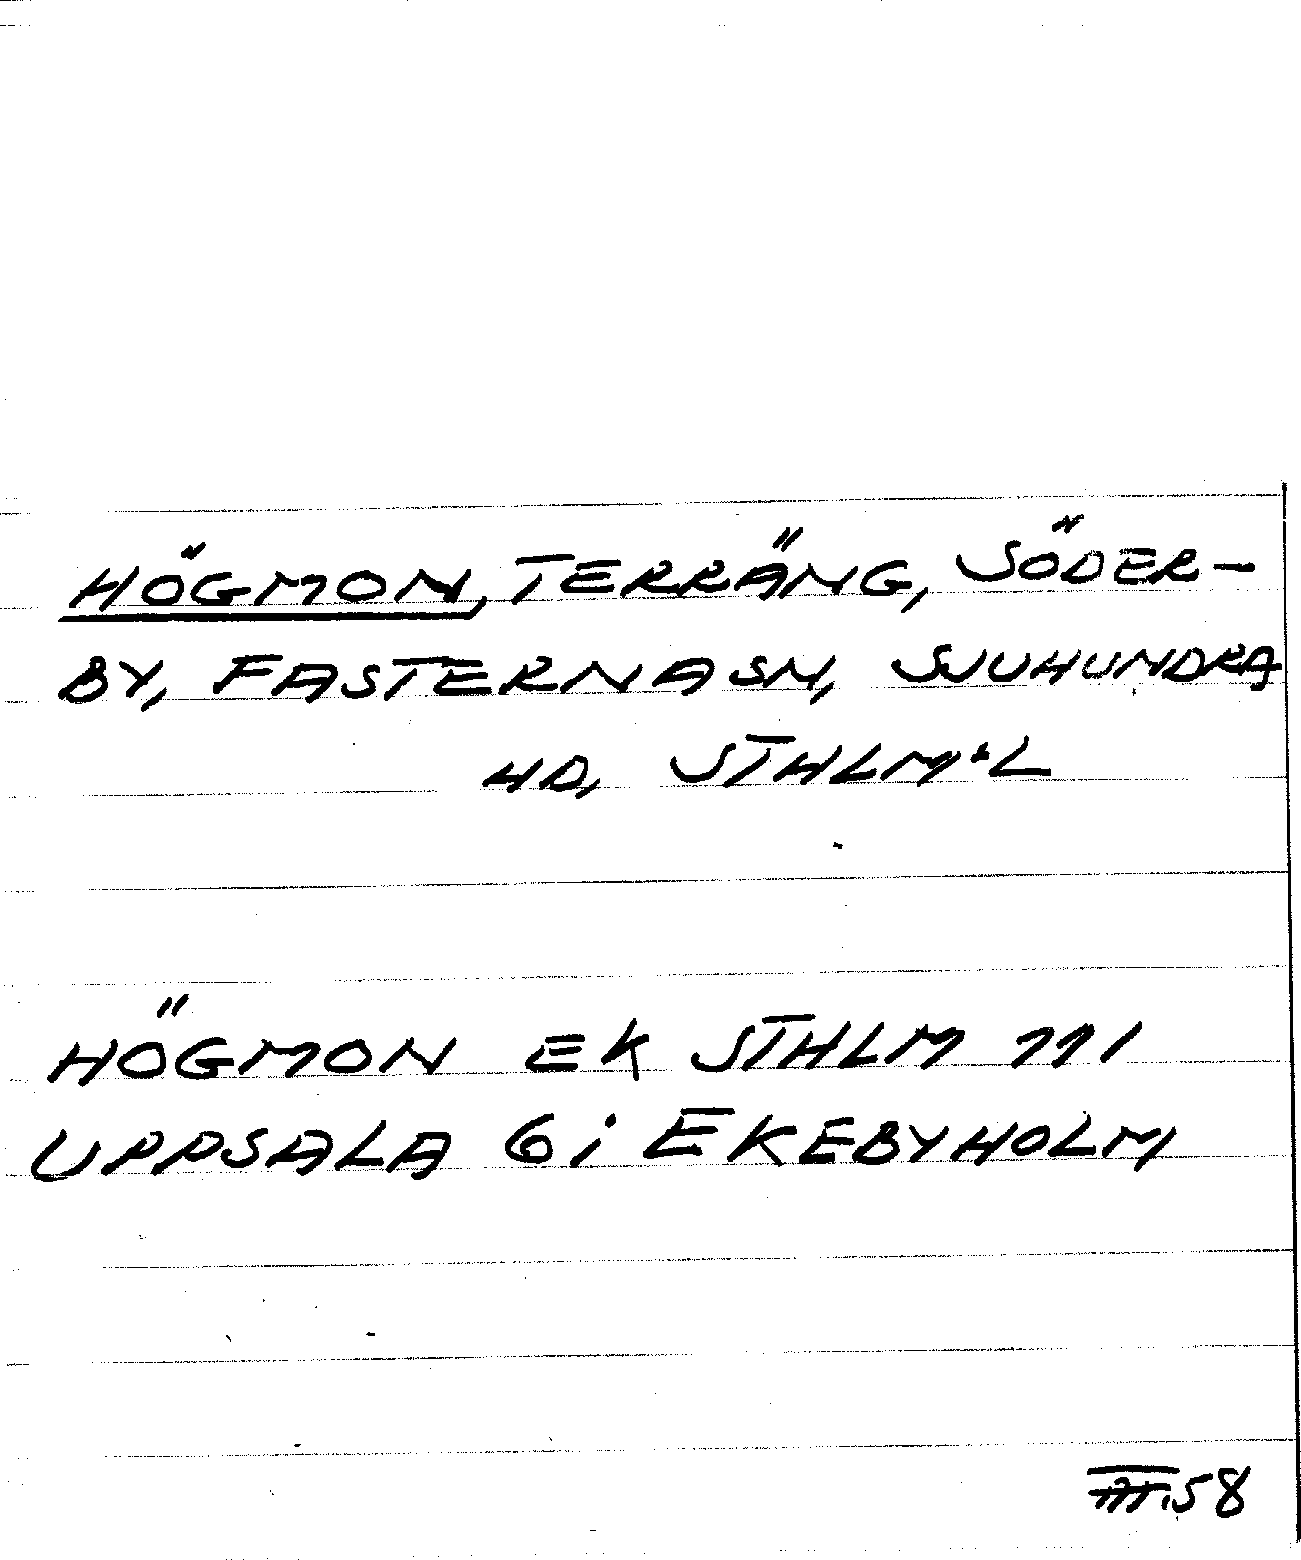 HÖGMON, TERRÄNG, SÖDER-
BY, FASTERNA SN, SJUHUNDRA
HD, STHLM:L
HÖGMON EK STHLM 111
UPPSALA 6 i EKEBYHOLM
58